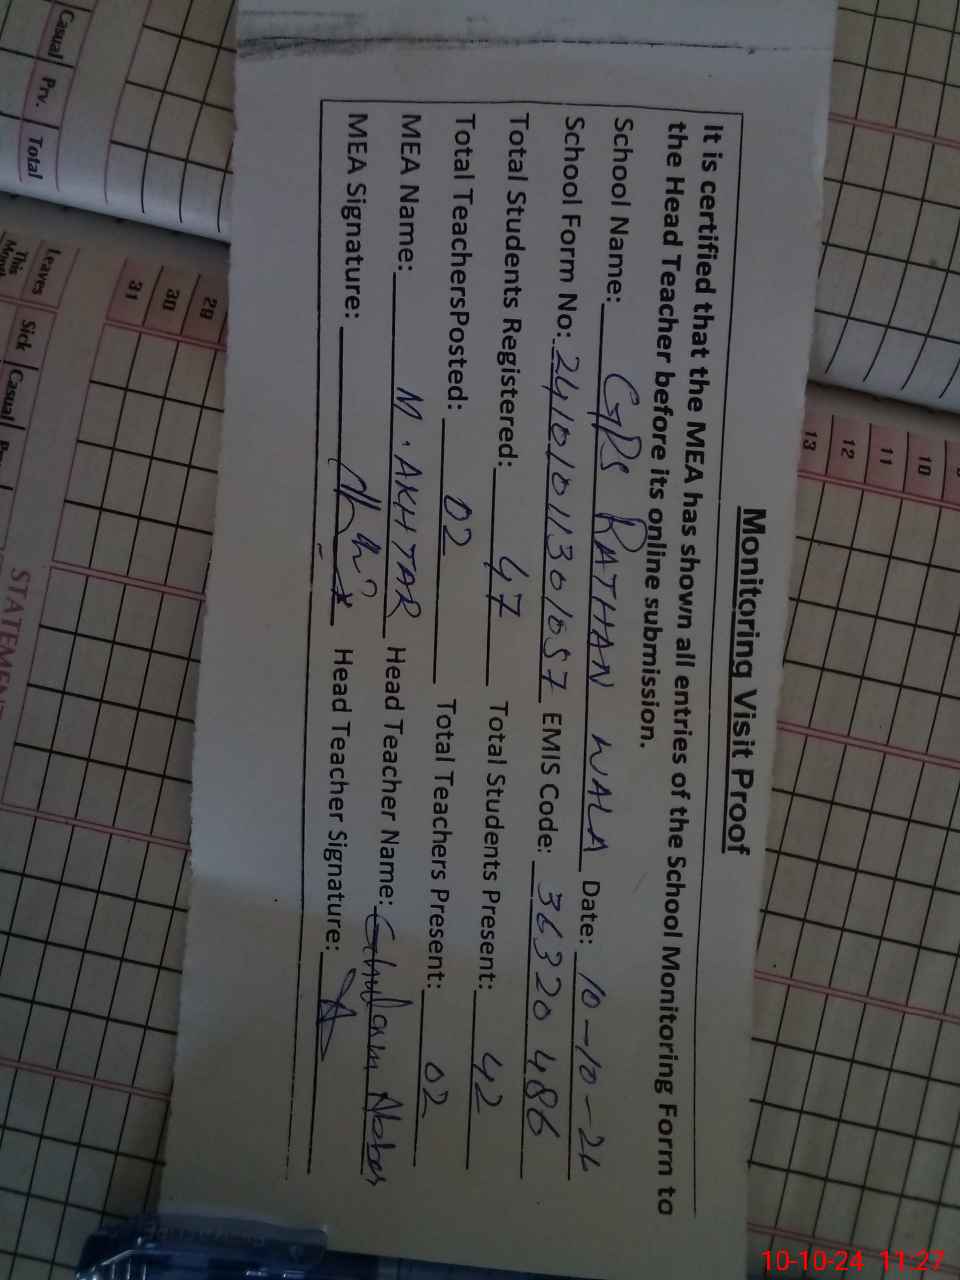 Monitoring Visit Proof
It is certified that the MEA has shown all entries of the School Monitoring Form to
the Head Teacher before its online submission.
School Name: GPS RATHAN WALA Date: 10-10-24
School Form No: 24101011301057 EMIS Code: 36320486
Total Students Registered: 47 Total Students Present: 42
Total TeachersPosted: 02 Total Teachers Present: 02
MEA Name: M. AKHTAR Head Teacher Name: Ghulam
MEA Signature: Head Teacher Signature:
Casual Prv. Total
Leaves This Sick Casual
29
30
31
STATEMEN
10
11
12
13
10-10-24 11:27